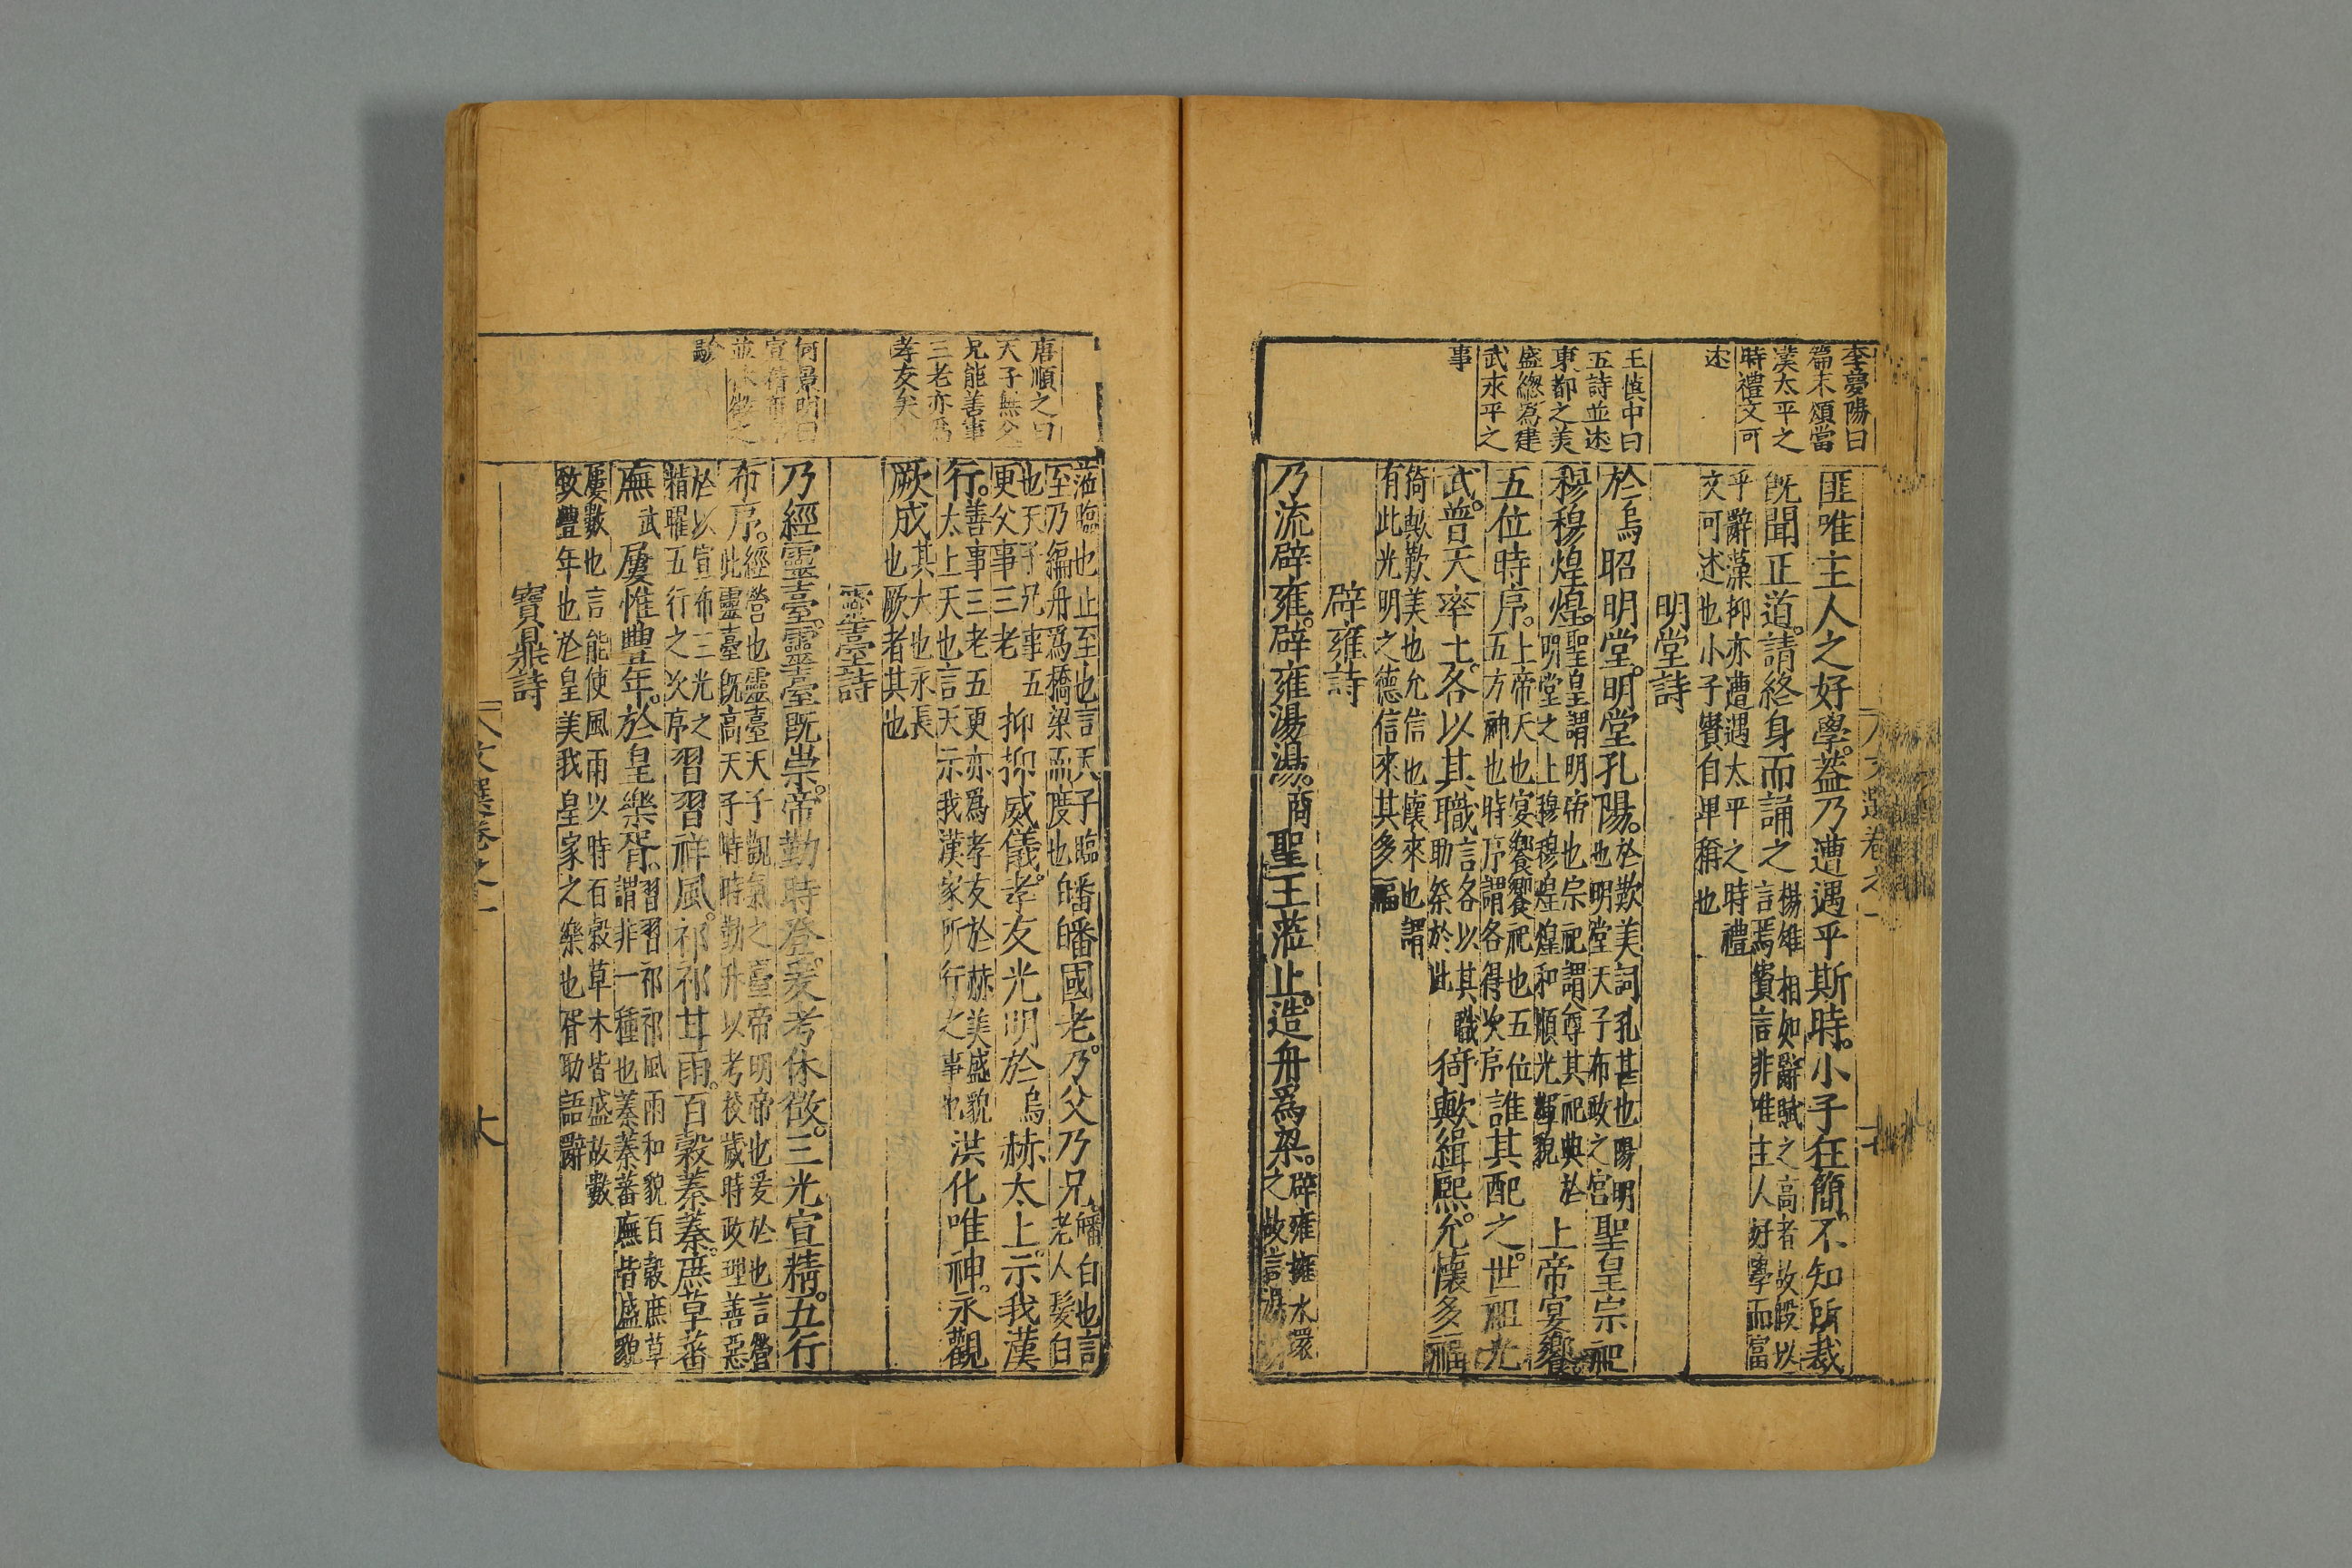 李夢陽曰
篇末頌當
漢太平之
時禮文可
述
王慎中曰
五詩並述
東都之美
盛總爲建
武永平之
事
匪唯主人之好學葢乃遭遇乎斯時小子狂簡不知所裁
既聞正道請終身而誦之
揚雄相如辭賦之高者故假以
言焉賓言非唯主人好學而富
乎辭藻抑亦遭遇太平之時禮
文可述也小子賓自卑稱也
明堂詩
於烏昭明堂明堂孔陽
於歎美詞孔甚也陽明
也明堂天子布政之宮
聖皇宗祀
穆穆煌煌
聖皇謂明帝也宗祀謂尊其祀典於
明堂之上穆穆煌煌和順光輝貌
上帝宴饗
五位時序
上帝天也宴饗饗祀也五位
五方神也時序謂各得次序
誰其配之世祖光
武普天率土各以其職
言各以其職
助祭於此
猗歟緝熙允懷多福
猗歟歎美也允信也懷來也謂
有此光明之德信來其多福
辟雍詩
乃流辟雍辟雍湯湯商聖王蒞止造舟爲梁
辟雍擁水環
之故言湯
文選卷之一
蒞臨也止至也言天子臨
至乃編舟爲橋梁而度也
皤皤國老乃父乃兄
皤白也言
老人髮白
也天子兄事五
更父事三老
抑抑威儀孝友光明於烏赫太上示我漢
行
善事三老五更亦爲孝友於赫美盛貌
太上天也言天示我漢家所行之事也
洪化唯神永觀
厥成
其大也永長
也厥者其也
靈臺詩
乃經靈臺靈臺既崇帝勤時登爰考休徵三光宣精五行
布序
經營也靈臺天子觀氣之臺帝明帝也爰於也言營
此靈臺既高天子時時勤升以考校歲時政理善惡
於以宣布三光之
精曜五行之次序
習習祥風祁祁甘雨百穀蓁蓁庶草蕃
廡武屢惟豐年於皇樂胥
習習祁祁風雨和貌百穀庶草
謂非一種也蓁蓁蕃廡皆盛貌
屢數也言能使風雨以時百穀草木皆盛故數
致豐年也於皇美我皇家之樂也胥助語辭
寶鼎詩
唐順之曰
天子無父
兄能善事
三老亦爲
孝友矣
何景明曰
宣精
並休徵之
驗
文選卷之一